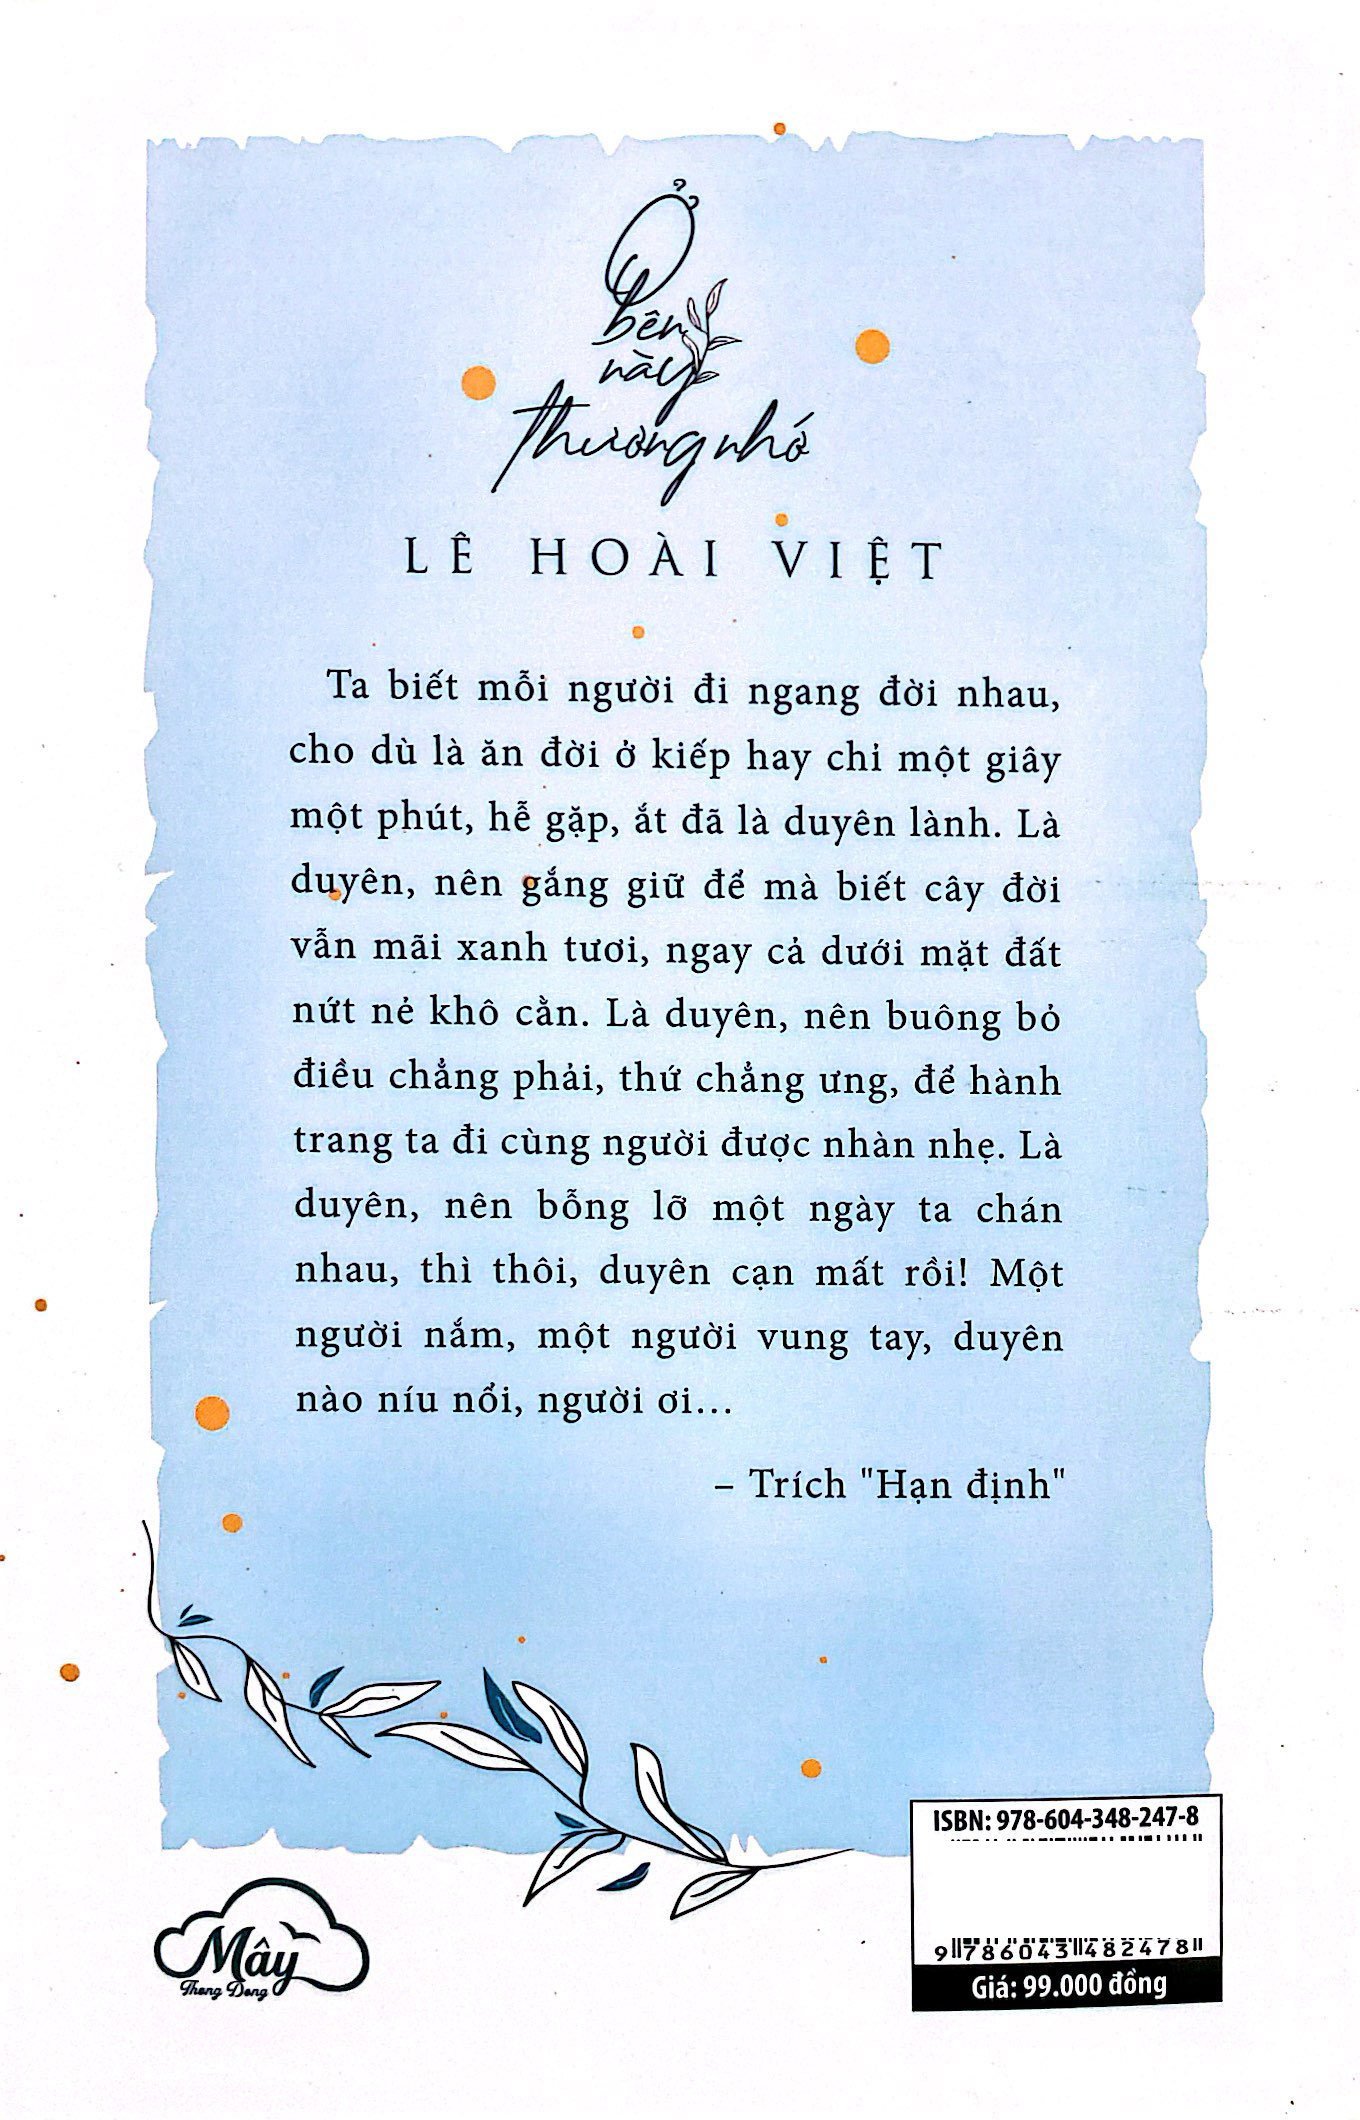 Ở
bên
này
thương nhớ
LÊ HOÀI VIỆT
Ta biết mỗi người đi ngang đời nhau,
cho dù là ăn đời ở kiếp hay chỉ một giây
một phút, hễ gặp, ắt đã là duyên lành. Là
duyên, nên gắng giữ để mà biết cây đời
vẫn mãi xanh tươi, ngay cả dưới mặt đất
nứt nẻ khô cằn. Là duyên, nên buông bỏ
điều chẳng phải, thứ chẳng ưng, để hành
trang ta đi cùng người được nhàn nhẹ. Là
duyên, nên bỗng lỡ một ngày ta chán
nhau, thì thôi, duyên cạn mất rồi! Một
người nắm, một người vung tay, duyên
nào níu nổi, người ơi...
– Trích "Hạn định"
ISBN: 978-604-348-247-8
9 786043 482478
Giá: 99.000 đồng
Mây
Thong Dong